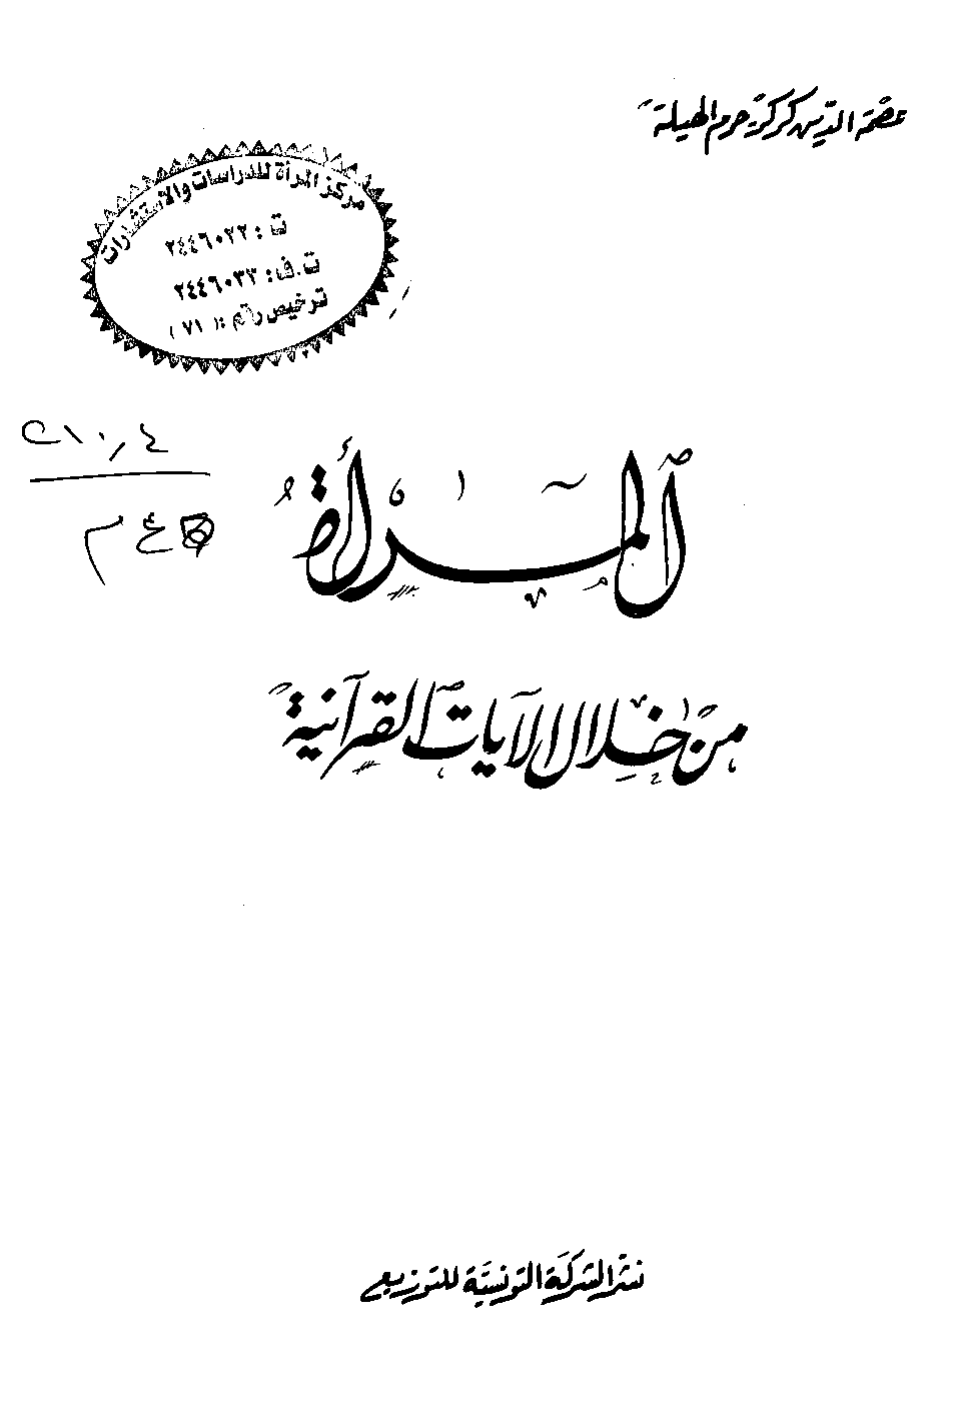 عصمة الدين كركر حرم الهيلة
مركز المرأة للدراسات والاستشارات
ت : ٢٤٤٦٠٢٢
ت . ف : ٢٤٤٦٠٣٣
ترخيص رقم : ( ٧١ )
٢١٠,٤
المرأة
من خلال الآيات القرآنية
نشر الشركة التونسية للتوزيع